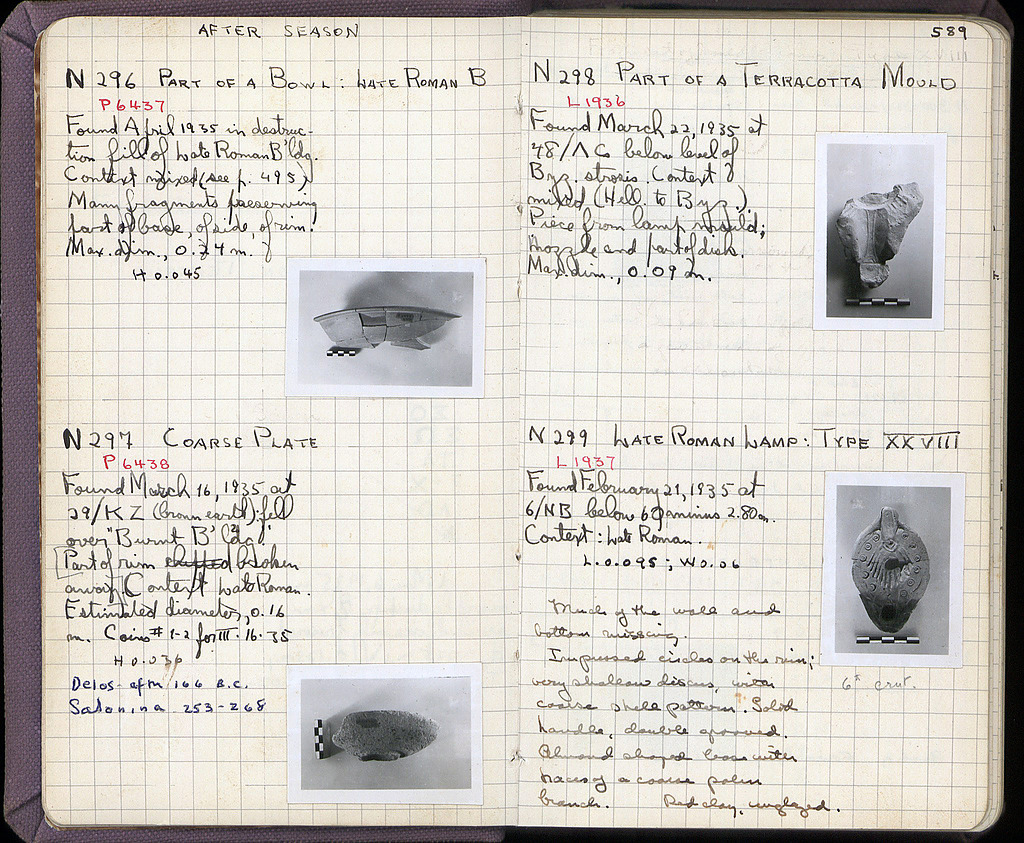 AFTER SEASON
N 296 PART OF A BOWL: LATE ROMAN B
P 6437
Found April 1935 in destruc-
tion fill of Late Roman B'ldg.
Context mixed (see p. 495)
Many fragments preserving
part of base, of side, of rim.
Max. dim., 0.24 m.
H 0.045
N 297 COARSE PLATE
P 6438
Found March 16, 1935 at
29/ΚΖ (brown earth): fell
over "Burnt B'ldg."
Part of rim chipped broken
away. Context Late Roman.
Estimated diameter, 0.16
m. Coins #1-2 for III. 16. 35
H 0.036
Delos - aftr 166 B.C.
Salonina 253-268
589
N 298 PART OF A TERRACOTTA MOULD
L 1936
Found March 22, 1935 at
48/ΛC below level of
Byz. strosis. Context
mixed (Hell. to Byz.).
Piece from lamp mould;
nozzle and part of disk.
Max. dim., 0.09 m.
N 299 LATE ROMAN LAMP: TYPE XXVIII
L 1937
Found February 21, 1935 at
6/ΝΒ below 60 minus 2.80 m.
Context: Late Roman.
L. 0.095; W 0.06
Much of the wall and
bottom missing.
Impressed circles on the rim;
very shallow discus, with
coarse shell pattern. Solid
handle, double grooved.
Almond shaped base with
traces of a coarse palm
branch. Red clay, unglazed.
6th cent.